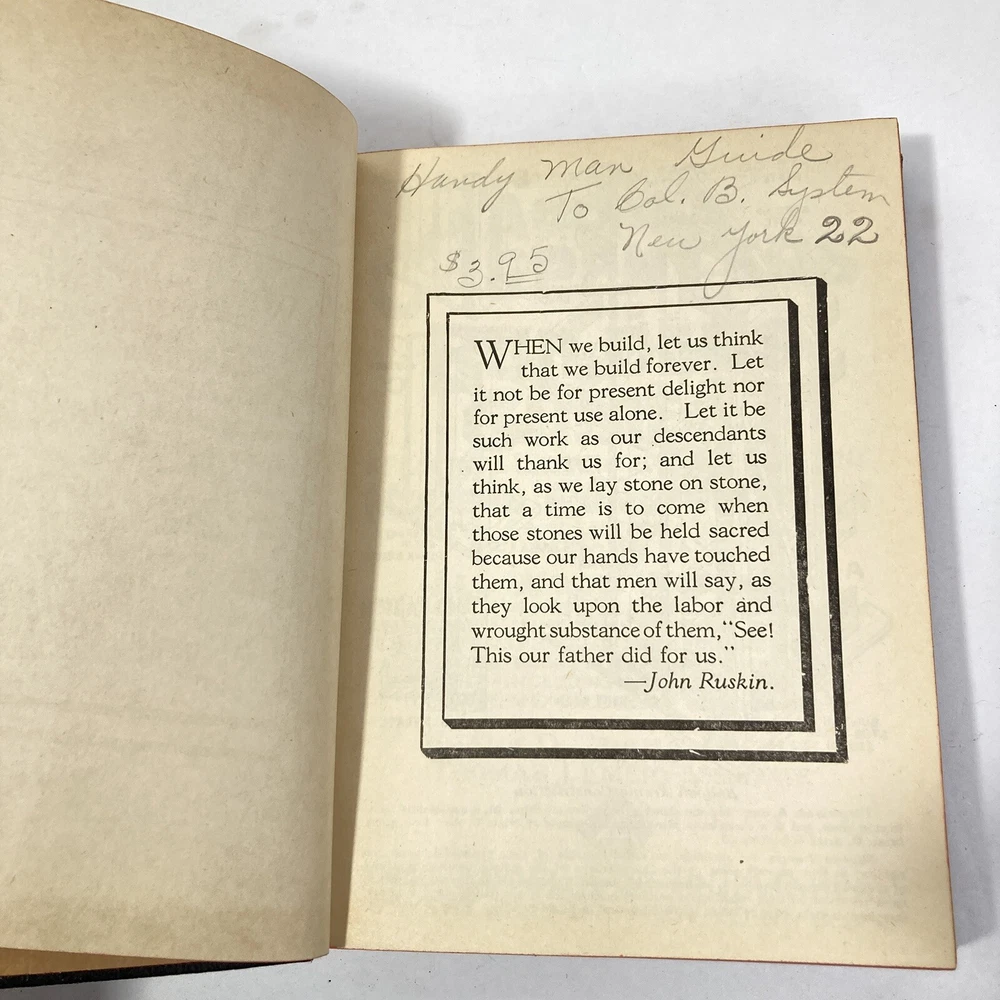 Handy Man Guide
To Col. B. System
New York 22
$3.95
WHEN we build, let us think
that we build forever. Let
it not be for present delight nor
for present use alone. Let it be
such work as our descendants
will thank us for; and let us
think, as we lay stone on stone,
that a time is to come when
those stones will be held sacred
because our hands have touched
them, and that men will say, as
they look upon the labor and
wrought substance of them, "See!
This our father did for us."
—John Ruskin.